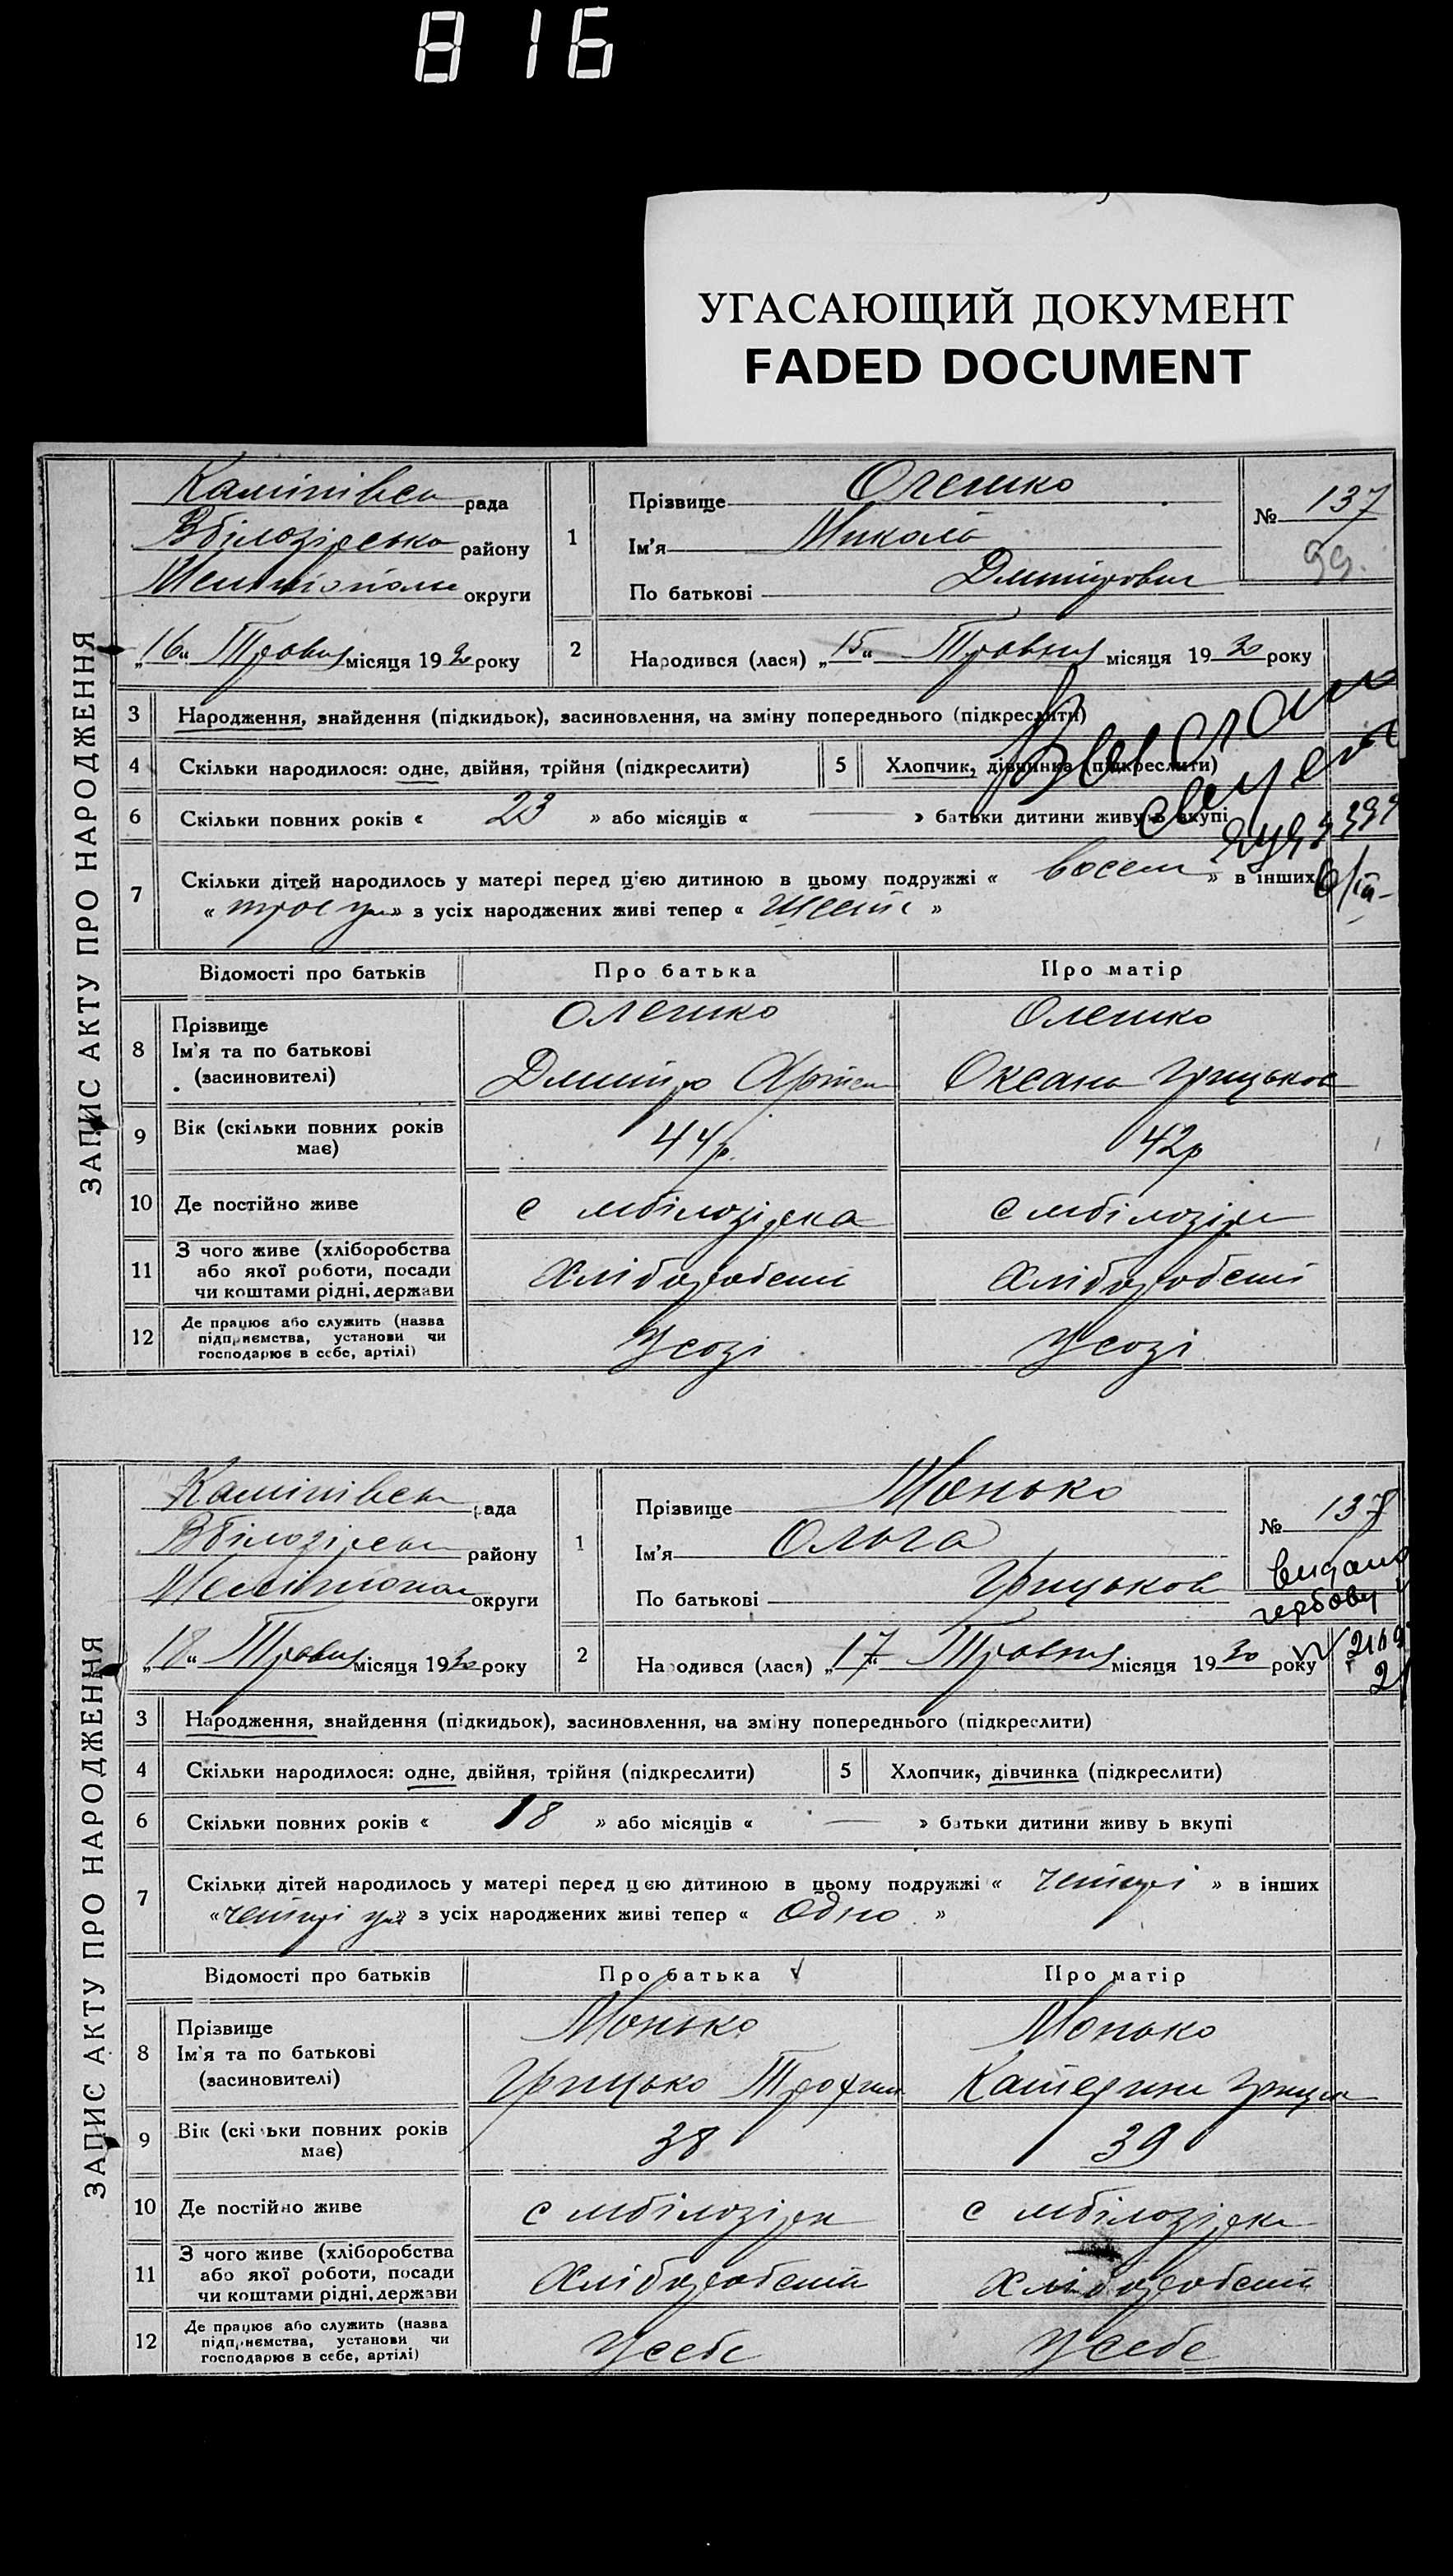 816
УГАСАЮЩИЙ ДОКУМЕНТ
FADED DOCUMENT
ЗАПИС АКТУ ПРО НАРОДЖЕННЯ
рада
району
округи
„16“ Травня місяця 1930 року
1
Прізвище Олешко
Ім'я Микола
По батькові Дмитрович
№ 137
99.
2
Народився (лася) „15“ Травня місяця 1930 року
3 Народження, знайдення (підкидьок), засиновлення, на зміну попереднього (підкреслити)
4 Скільки народилося: одне, двійня, трійня (підкреслити) 5 Хлопчик, дівчинка (підкреслити)
6 Скільки повних років « 23 » або місяців « — » батьки дитини живуть вкупі
7 Скільки дітей народилось у матері перед цією дитиною в цьому подружжі « восем » в інших
« » з усіх народжених живі тепер « »
Відомості про батьків Про батька Про матір
8 Прізвище Олешко Олешко
Ім'я та по батькові Дмитро Артем Оксана Грицьков
(засновителі)
9 Вік (скільки повних років має) 44р. 42р
10 Де постійно живе с мбілозірка с мбілозірк
11 З чого живе (хліборобства або якої роботи, посади чи коштами рідні, держави Хліборобств Хліборобств
12 Де працює або служить (назва підприємства, установи чи господарює в себе, артілі) Усозі Усозі
ЗАПИС АКТУ ПРО НАРОДЖЕННЯ
рада
району
округи
„18“ Травня місяця 1930 року
1
Прізвище Монько
Ім'я Ольга
По батькові Грицьков
№ 138
видано
гербову
2
Народився (лася) „17“ Травня місяця 1930 року
3 Народження, знайдення (підкидьок), засиновлення, на зміну попереднього (підкреслити)
4 Скільки народилося: одне, двійня, трійня (підкреслити) 5 Хлопчик, дівчинка (підкреслити)
6 Скільки повних років « 18 » або місяців « — » батьки дитини живу ь вкупі
7 Скільки дітей народилось у матері перед цією дитиною в цьому подружжі « четирі » в інших
« четирі » з усіх народжених живі тепер « одно »
Відомості про батьків Про батька Про матір
8 Прізвище Монько Монько
Ім'я та по батькові Грицько Трофим Катерина
(засиновителі)
9 Вік (скільки повних років має) 38 39
10 Де постійно живе с мбілозірк с мбілозірка
11 З чого живе (хліборобства або якої роботи, посади чи коштами рідні, держави Хліборобств Хліборобств
12 Де працює або служить (назва підприємства, установи чи господарює в себе, артілі) Усебе Усебе